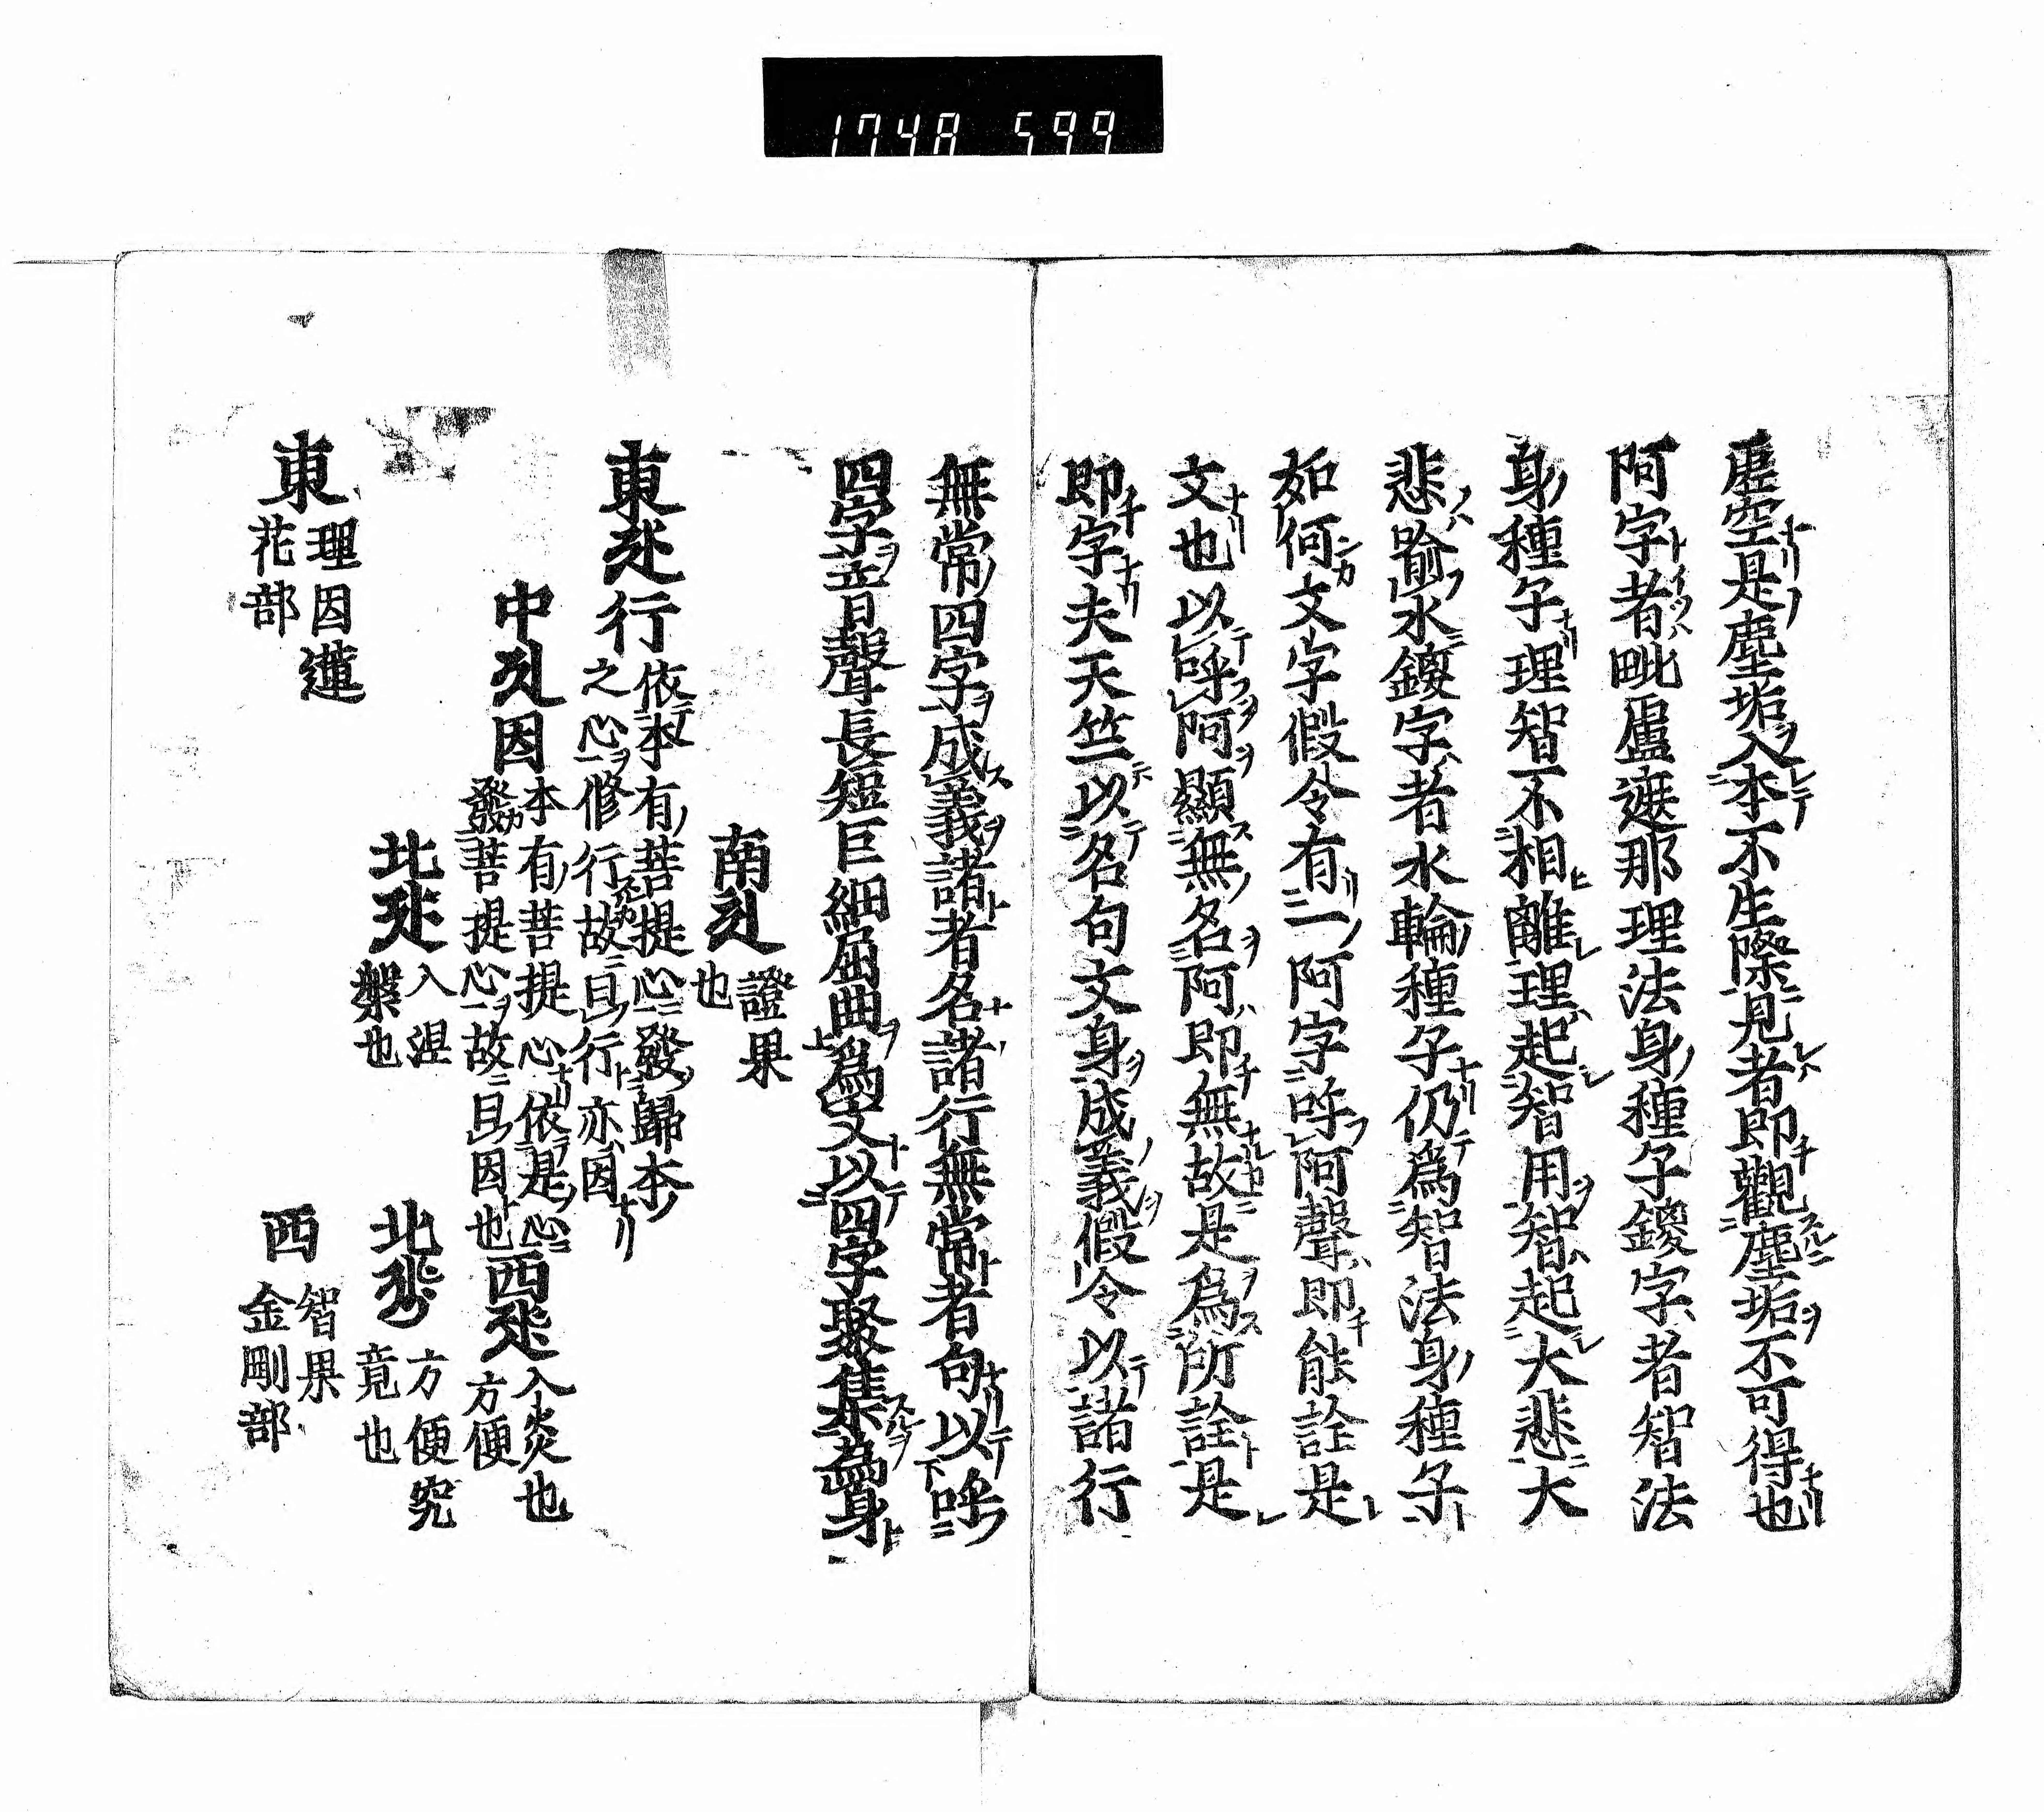 1748 599
虛空是塵垢入本不生際見者即觀塵垢不可得也
阿字者毗盧遮那理法身種子鑁字者智法
身種子理智不相離理起智用智起大悲大
悲喩水鑁字者水輪種子仍爲智法身種子
如何文字假令有一阿字呼阿聲即能詮是
文也以呼阿顯無名阿即無故是爲所詮是
即字夫天竺以名句文身成義假令以諸行
無常四字成義諸者名諸行無常者句以呼
四字音聲長短巨細屈曲爲文以四字聚集爲身
南 證果
也
東 行 依本有菩提心發歸本
之心修行故曰行亦因
中 因 本有菩提心依是心
發菩提心故曰因也
西 入炎也
方便
北 入涅
槃也
北 方便究
竟也
東 理因蓮
花部
西 智果
金剛部